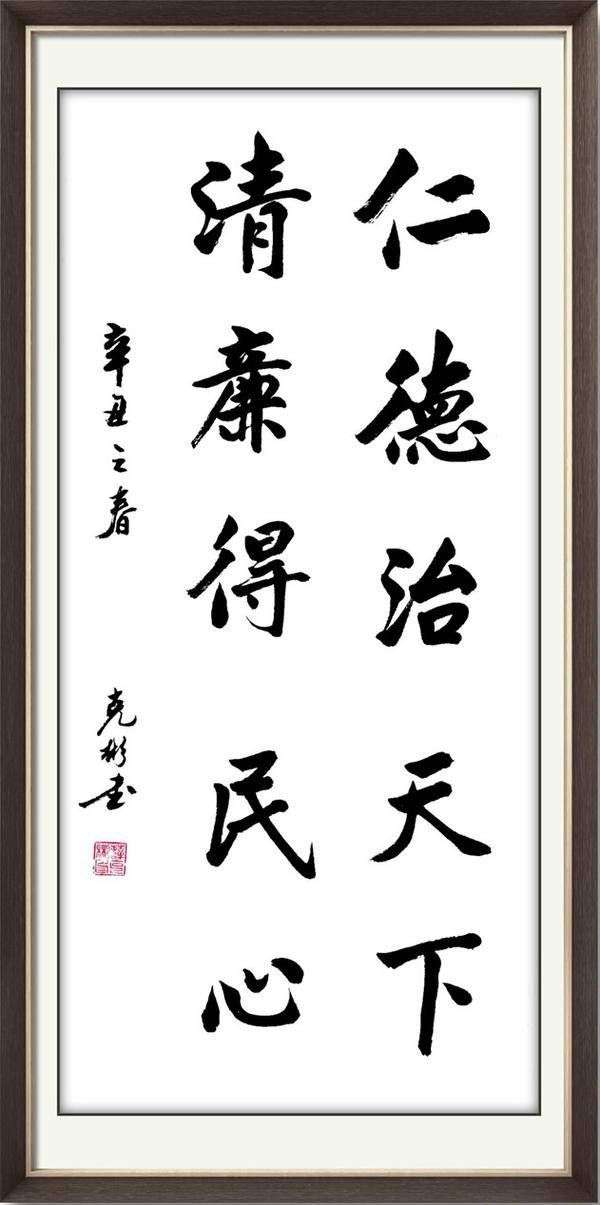 仁德治天下
清廉得民心
辛丑之春
克彬书